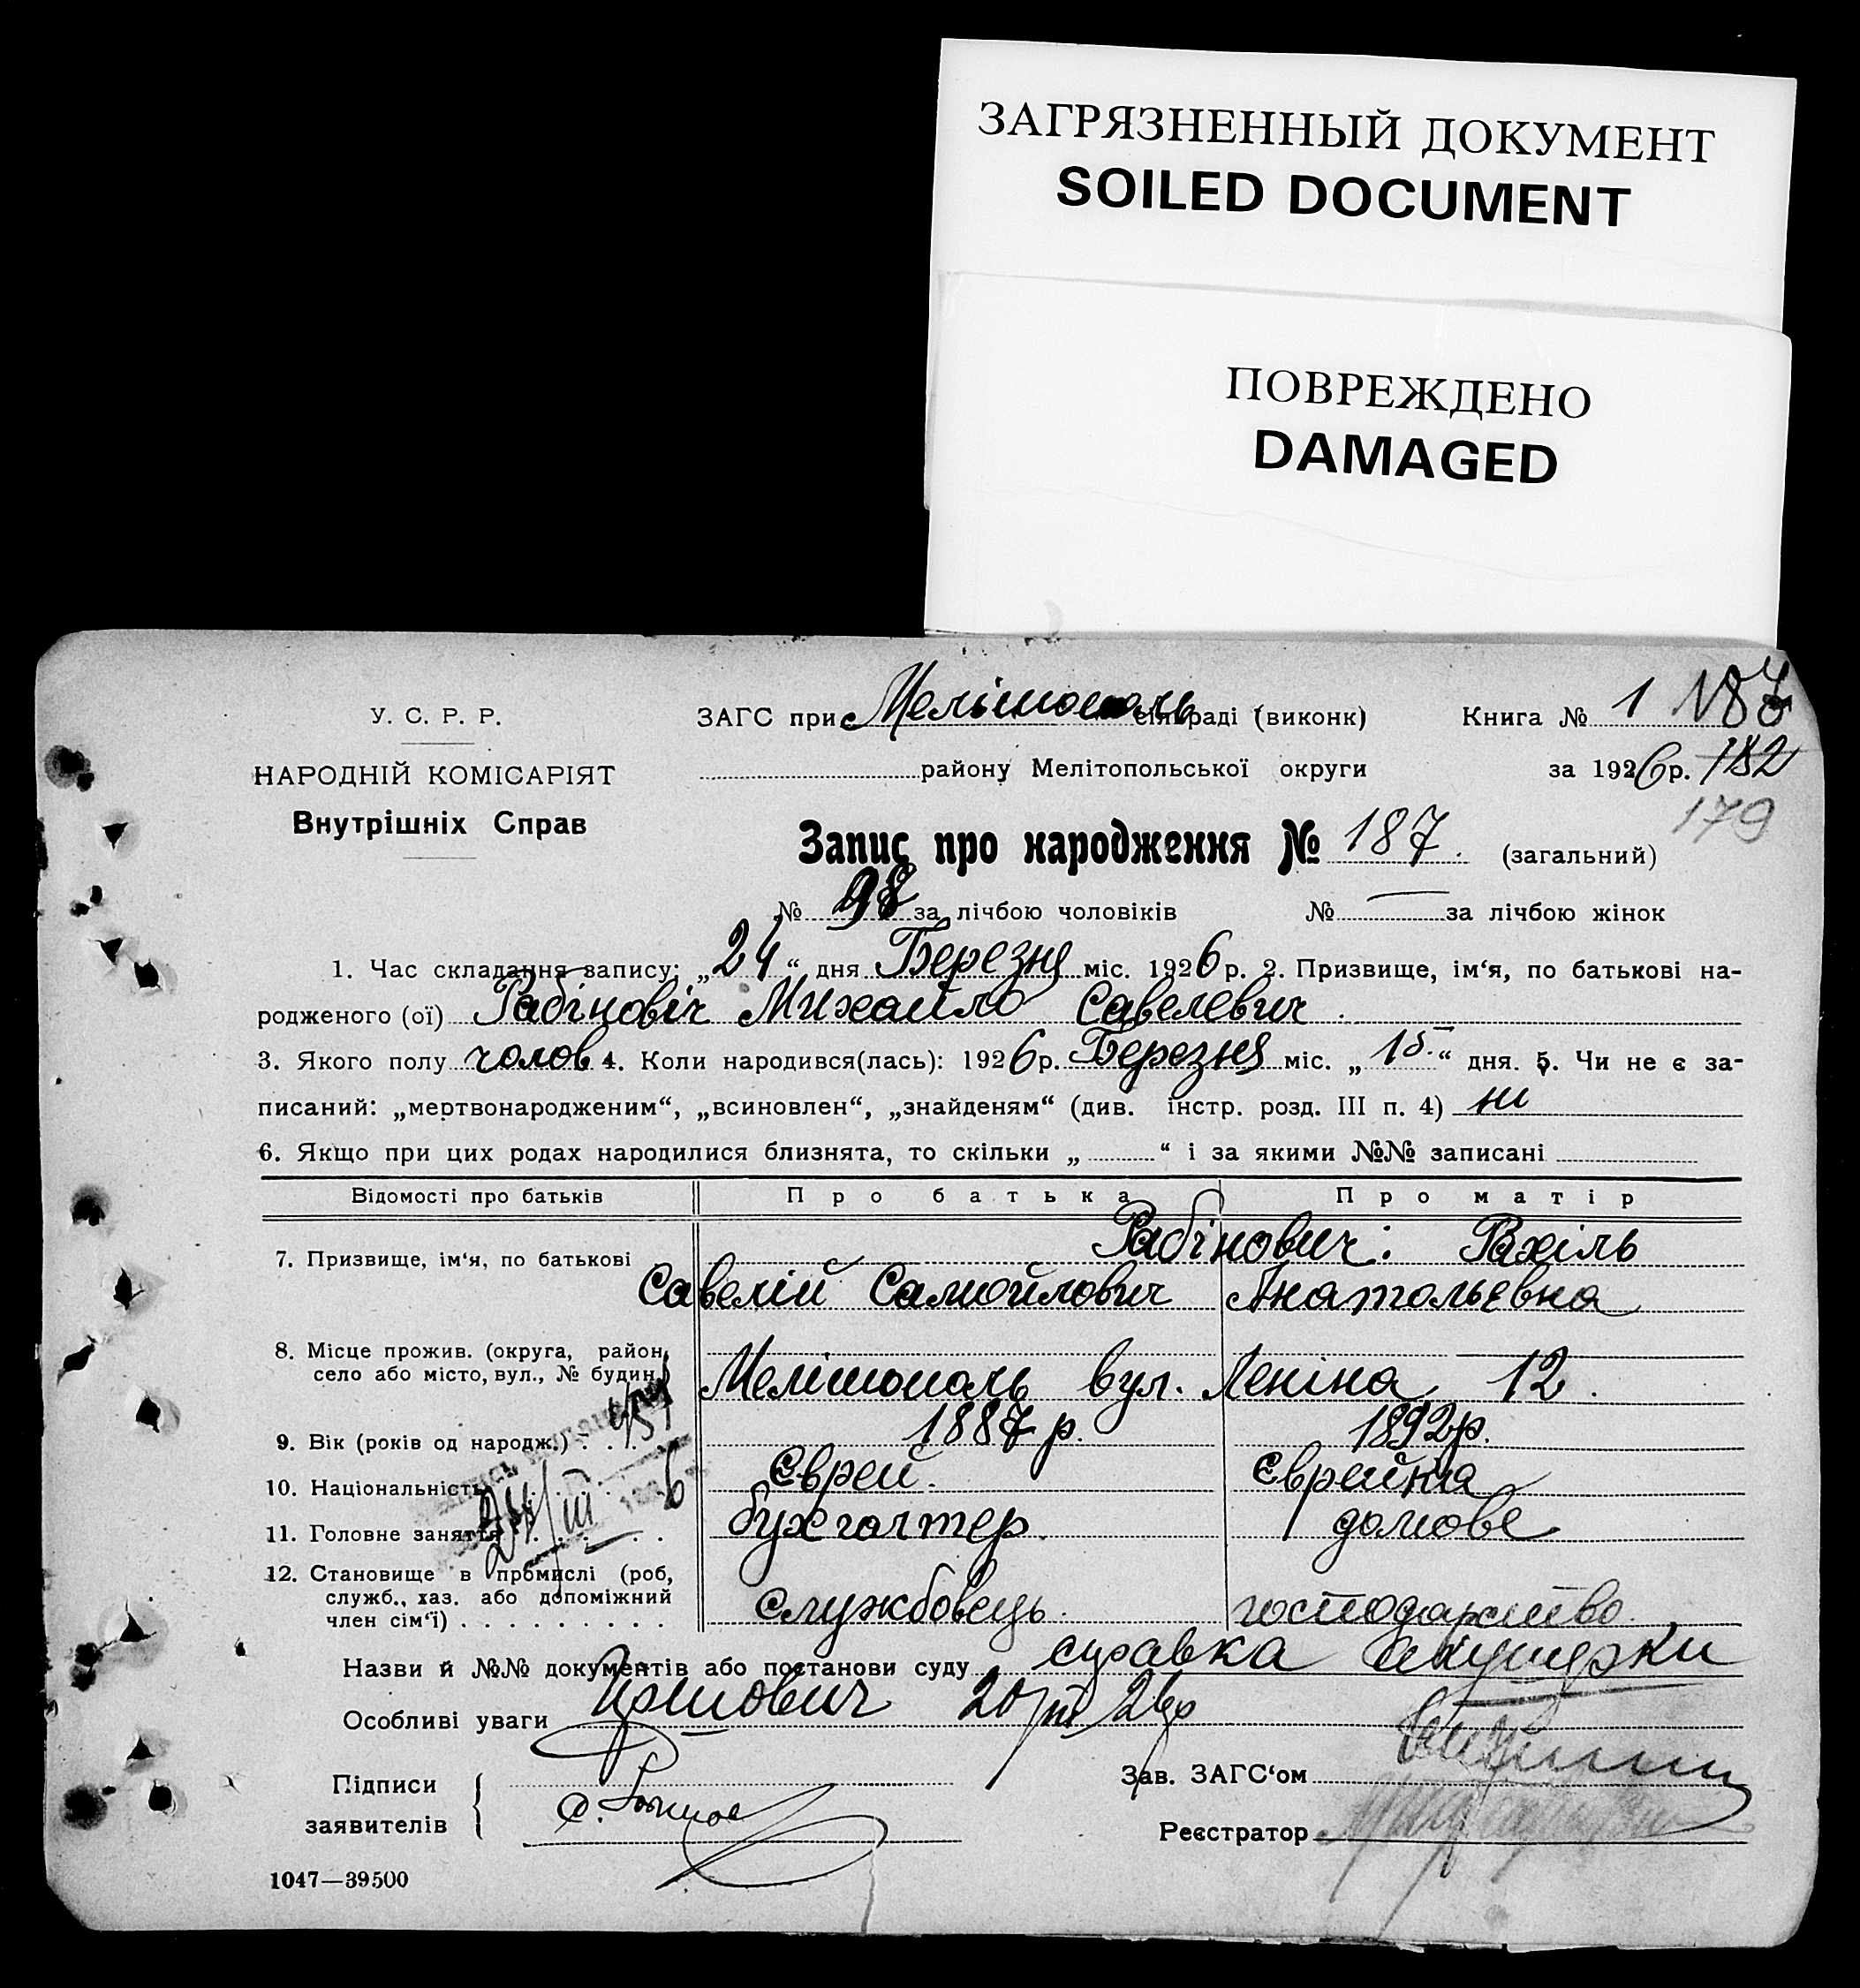 ЗАГРЯЗНЕННЫЙ ДОКУМЕНТ
SOILED DOCUMENT
ПОВРЕЖДЕНО
DAMAGED
У. С. Р. Р.
НАРОДНІЙ КОМІСАРІЯТ
Внутрішніх Справ
ЗАГС при Мелітополь раді (виконк) Книга № 1 187
району Мелітопольської округи за 1926 р. 182
179
Запис про народження № 187. (загальний)
№ 98 за лічбою чоловіків № — за лічбою жінок
1. Час складання запису: „24“ дня Березня міс. 1926 р. 2. Призвище, ім‘я, по батькові на-
родженого (ої) Рабіновіч Михайло Савелевич.
3. Якого полу чолов 4. Коли народився(лась): 1926 р. Березня міс. „15.“ дня. 5. Чи не є за-
писаний: „мертвонародженим“, „всиновлен“, „знайденям“ (див. інстр. розд. III п. 4) ні
6. Якщо при цих родах народилися близнята, то скільки „ “ і за якими №№ записані
Відомості про батьків Про батька Про матір
7. Призвище, ім‘я, по батькові Рабінович: Рахіль
Савелій Самойлович Анатольевна
8. Місце прожив. (округа, район,
село або місто, вул., № будин.) Мелітополь вул. Леніна 12.
9. Вік (років од народж.) 1887 р. 1892 р.
10. Національність Єврей. Єврейка
11. Головне заняття бухгалтер. домове
12. Становище в промислі (роб,
служб., хаз. або допоміжний
член сім‘ї) службовець. господарство.
24/III 6
Назви й №№ документів або постанови суду справка акушерки
Особливі уваги 20/III 26р
Підписи
заявителів
Зав. ЗАГС‘ом
Реєстратор
1047—39500